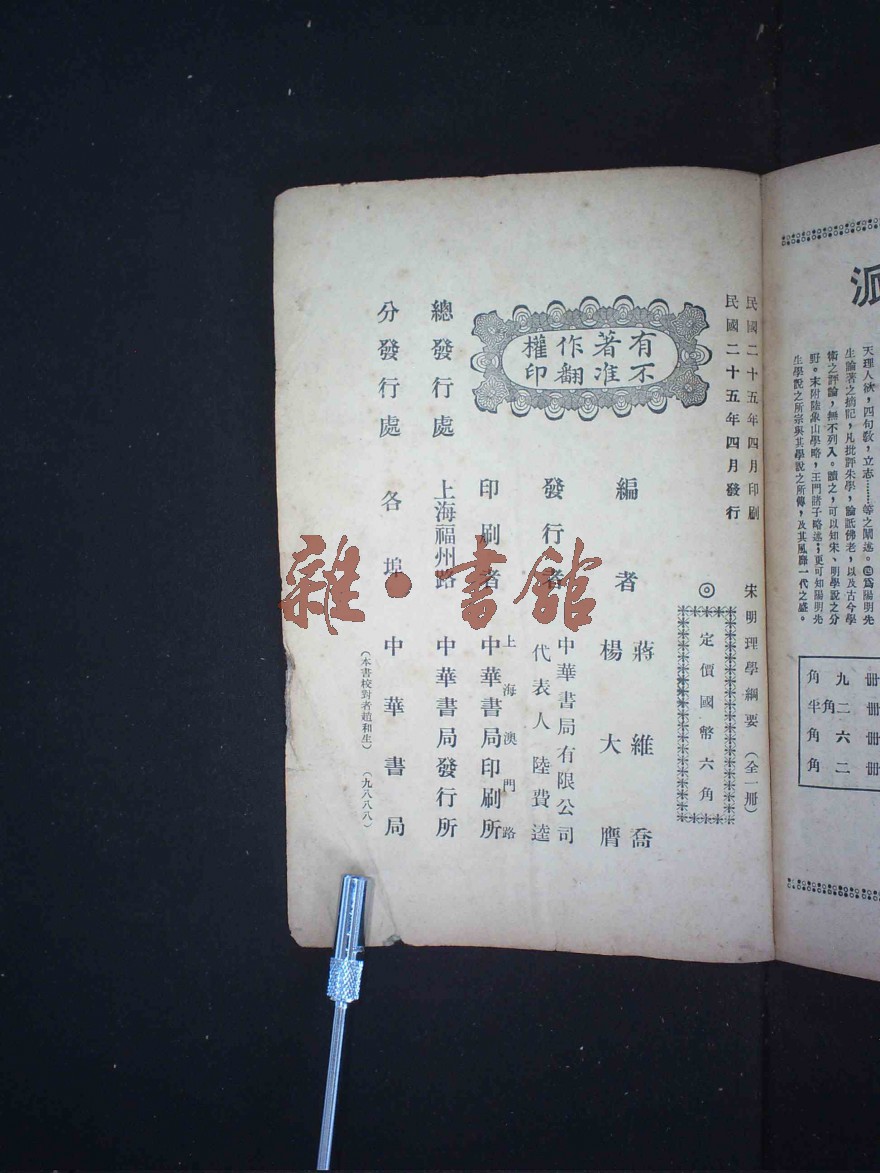 派
天理人欲，四句教，立志……等之闡述。㈣爲陽明先
生論著之摘記，凡批評朱學，論詆佛老，以及古今學
術之評論，無不列入。讀之，可以知宋、明學說之分
野。末附陸象山學略，王門諸子略述；更可知陽明先
生學說之所宗與其學說之所傳，及其風靡一代之盛。
冊 九角
冊 二角半
冊 六角
冊 二角
民國二十五年四月印刷
民國二十五年四月發行
宋明理學綱要（全一冊）
◎
定價國幣六角
有著作權
不准翻印
編者
蔣維喬
楊大膺
發行者
中華書局有限公司
代表人 陸費逵
印刷者
上海澳門路
中華書局印刷所
總發行處
上海福州路
中華書局發行所
分發行處
各埠
中華書局
（本書校對者趙和生）
（九八八八）
雜·書館